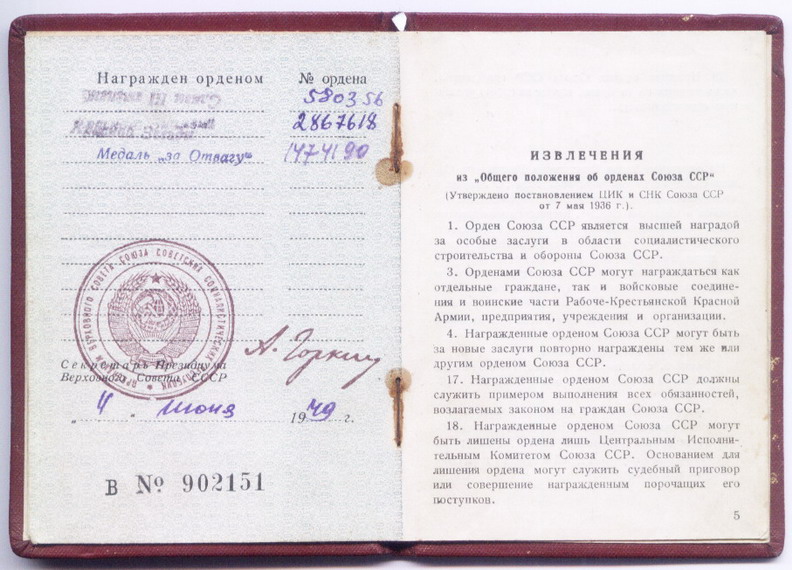 Награжден орденом № ордена
Славы III степени 580356
Красная Звезда 2867618
Медаль „за Отвагу“ 1474190
ПРЕЗИДИУМ ВЕРХОВНОГО СОВЕТА СОЮЗА СОВЕТСКИХ СОЦИАЛИСТИЧЕСКИХ РЕСПУБЛИК
Секретарь Президиума
Верховного Совета СССР
А. Горкин
„4“ Июня 1949 г.
В № 902151
ИЗВЛЕЧЕНИЯ
из „Общего положения об орденах Союза ССР“
(Утверждено постановлением ЦИК и СНК Союза ССР
от 7 мая 1936 г.).
1. Орден Союза ССР является высшей наградой
за особые заслуги в области социалистического
строительства и обороны Союза ССР.
3. Орденами Союза ССР могут награждаться как
отдельные граждане, так и войсковые соедине-
ния и воинские части Рабоче-Крестьянской Красной
Армии, предприятия, учреждения и организации.
4. Награжденные орденом Союза ССР могут быть
за новые заслуги повторно награждены тем же или
другим орденом Союза ССР.
17. Награжденные орденом Союза ССР должны
служить примером выполнения всех обязанностей,
возлагаемых законом на граждан Союза ССР.
18. Награжденные орденом Союза ССР могут
быть лишены ордена лишь Центральным Исполни-
тельным Комитетом Союза ССР. Основанием для
лишения ордена могут служить судебный приговор
или совершение награжденным порочащих его
поступков.
5